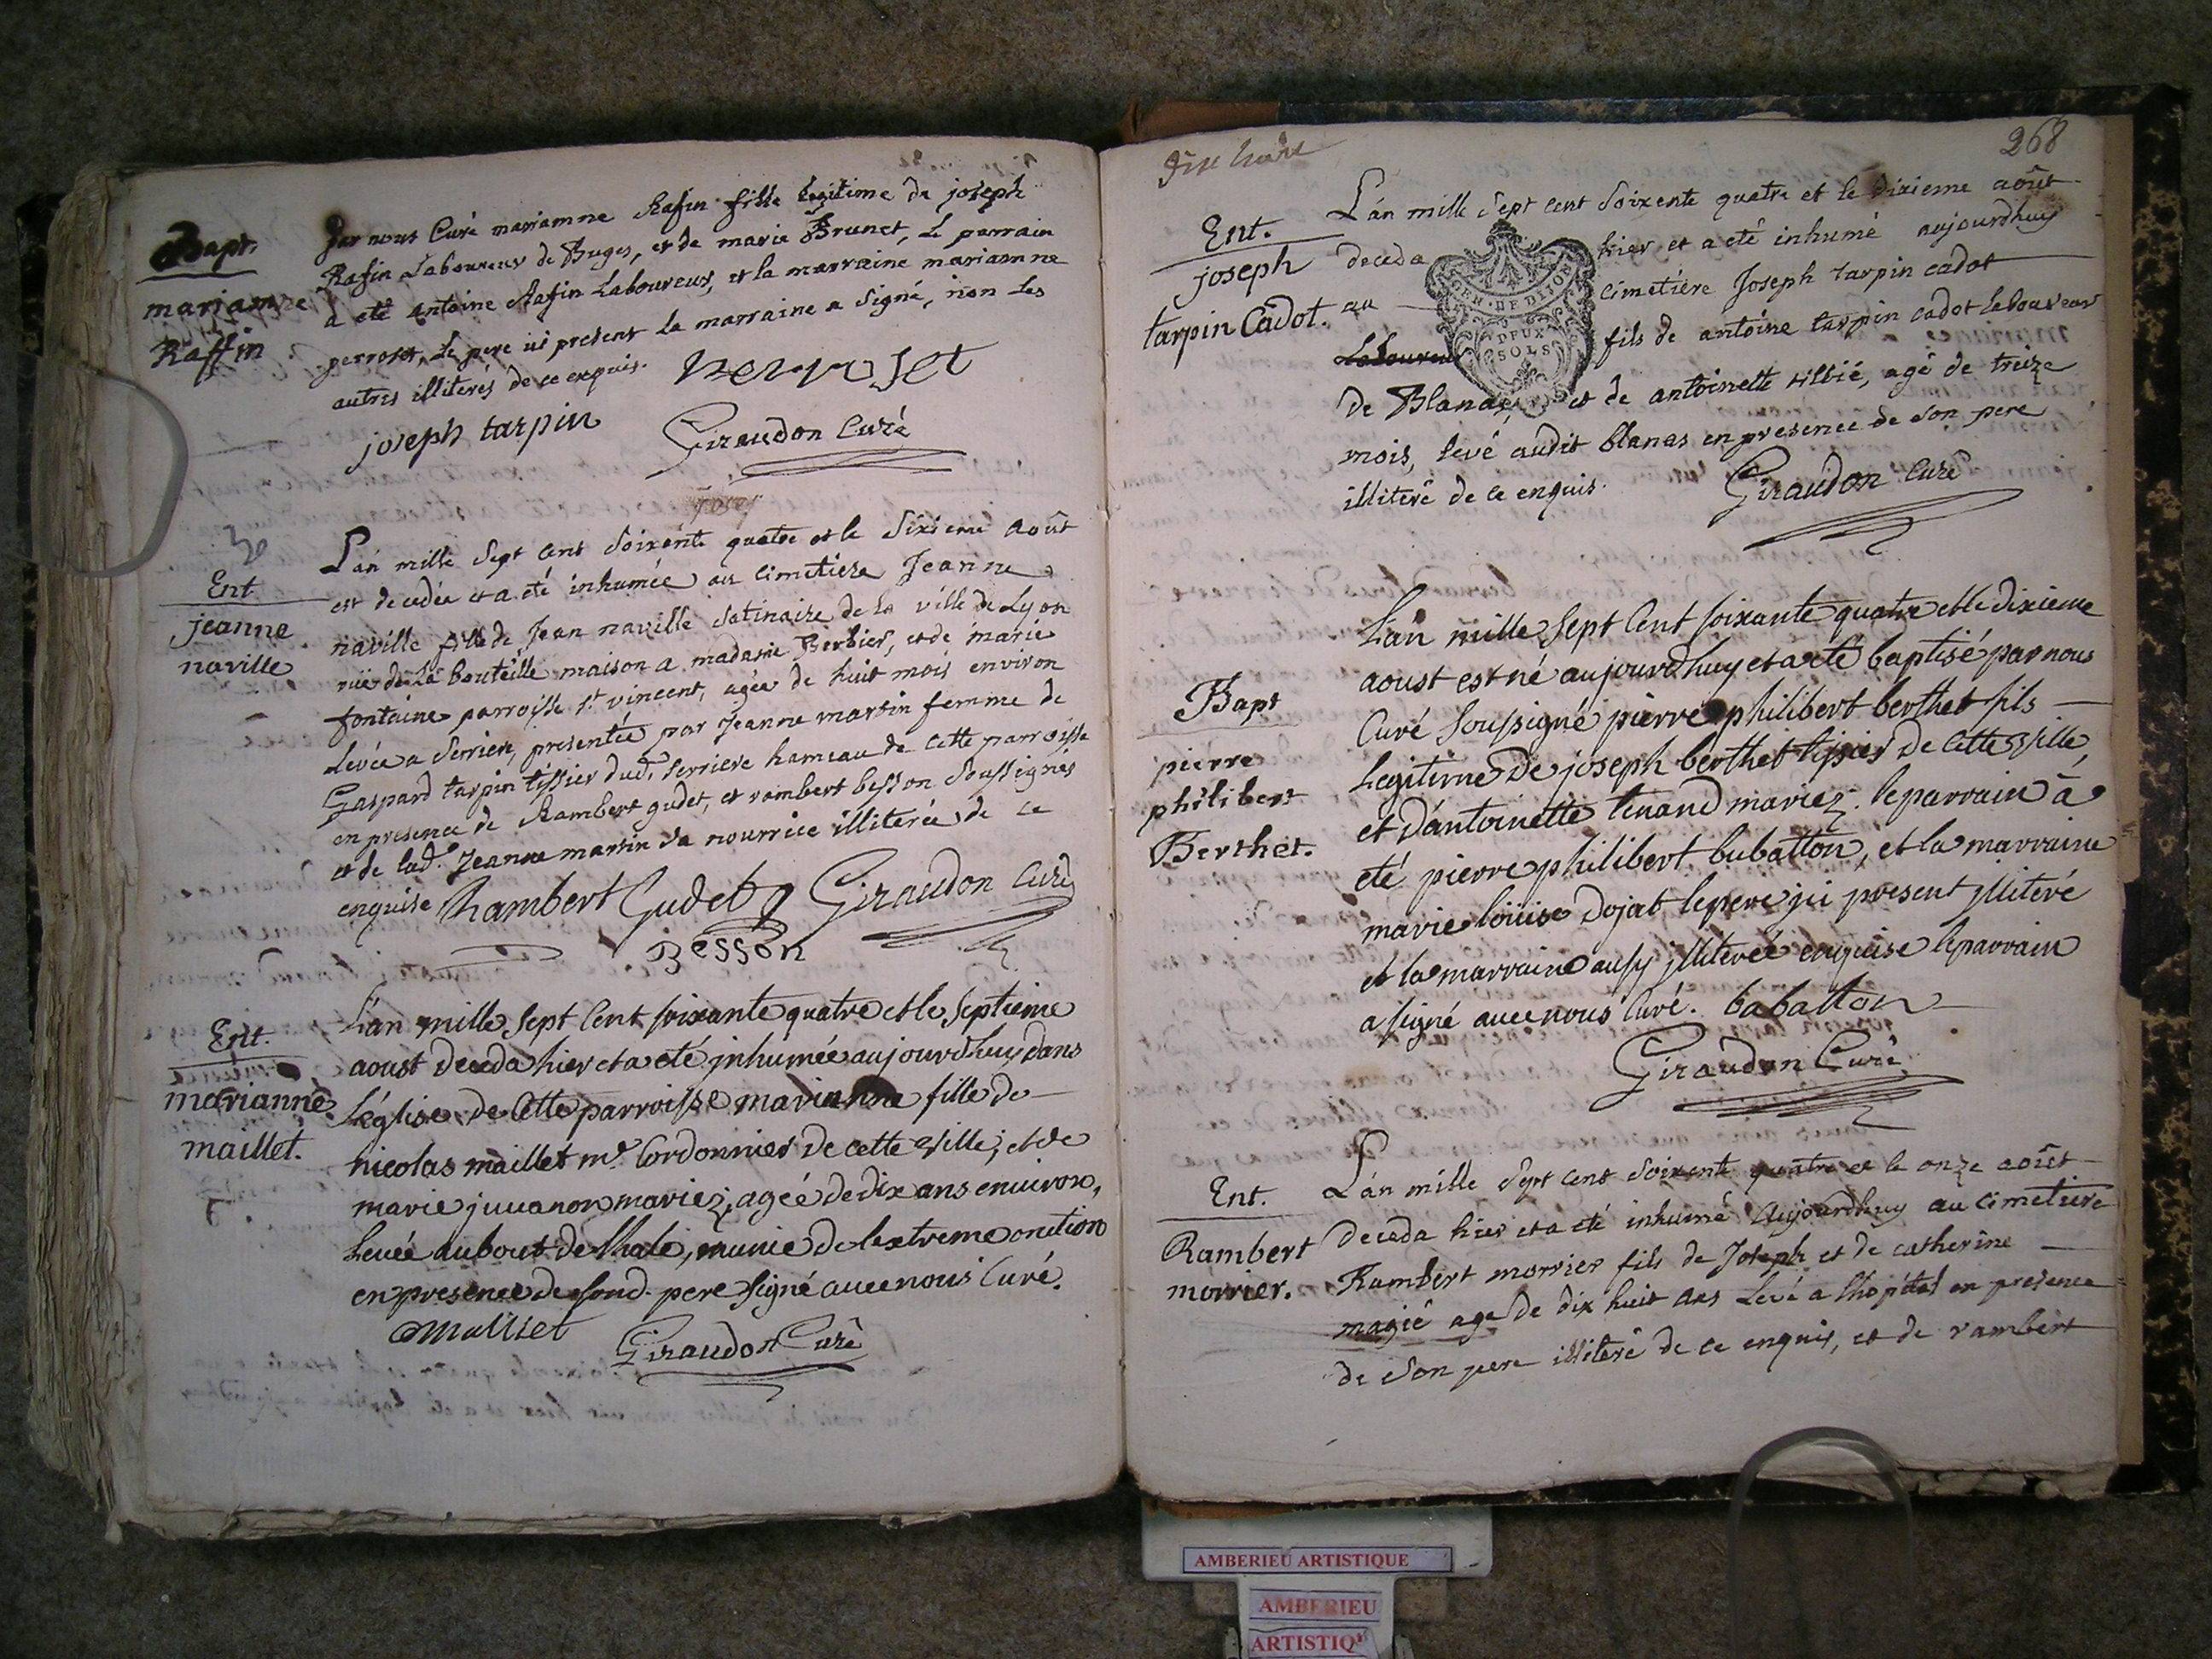 Bapt.
mariamne
Raffin
par nous Curé mariamne Rafin fille legitime de joseph
Rafin Laboureur de Buges, et de marie Brunet, Le parrain
a eté antoine Rafin Laboureur, et la marraine mariamne
perroset, Le pere ici present la marraine a signé, non les
autres illiterés de ce enquis. perroset
joseph tarpin Giraudon Curé
Ent
jeanne
naville
L'an mille sept cent soixente quatre et le sixieme août
est decedée et a eté inhumée au cimetiere Jeanne
naville fille de Jean naville satinaire de la ville de Lyon
rüe de la bouteille maison a madame Berbier, et de marie
fontaine parroisse st vincent, agée de huit mois environ
Levée a serriere, presentée par Jeanne martin femme de
Gaspard tarpin tissier dud. serriere hameau de cette parroisse
en presence de Rambert gudet, et rambert besson soussignés
et de lad. Jeanne martin sa nourrice illiterée de ce
enquise Rambert Gudet Giraudon Curé
Besson
Ent.
marianne
maillet.
L'an mille sept Cent soixante quatre et le septieme
aoust deceda hier et a eté jnhumée aujourdhuy dans
L'église de Cette parroisse marianne fille de
nicolas maillet me. Cordonnier de cette ville, et de
marie juuanon mariez, ageé de dix ans enuiron,
Leuée au bout de lhale, munie de lextreme onction
en presence de sond. pere signé auec nous Curé.
Malliet Giraudon Curé
268
Ent.
joseph
tarpin Cadot.
L'an mille sept cent soixente quatre et le dixieme août
deceda hier et a eté inhumé aujourdhuy
au cimetiére Joseph tarpin cadot
Laboureur fils de antoine tarpin cadot Laboureur
de Blanas, et de antoinette tillié, agé de treize
mois, levé audit blanas en presence de son pere
illiteré de ce enquis. Giraudon Curé
GEN. DE DIJON
DEUX
SOLS
Bapt
pierre
philibert
Berthet.
L'an mille sept Cent soixante quatre et le dixieme
aoust est né aujourdhuy et a eté baptisé par nous
Curé soussigné pierre philibert berthet fils
Legitime de joseph berthet tissier de cette ville,
et d'antoinette tenand mariez. le parrain à
eté pierre philibert babatton, et la marraine
marie loüise dojat le pere jci present jlliteré
et la marraine aussy jlliterée enquise le parrain
a signé auec nous Curé. babatton
Giraudon Curé
Ent.
Rambert
morrier.
L'an mille sept cent soixente quatre et le onze août
deceda hier et a eté inhumé aujourdhuy au cimetiere
Rambert morrier fils de Joseph et de catherine
magié agé de dix huit ans Levé a lhopital en presence
de son pere illiteré de ce enquis, et de rambert
AMBERIEU ARTISTIQUE
AMBERIEU
ARTISTIQ